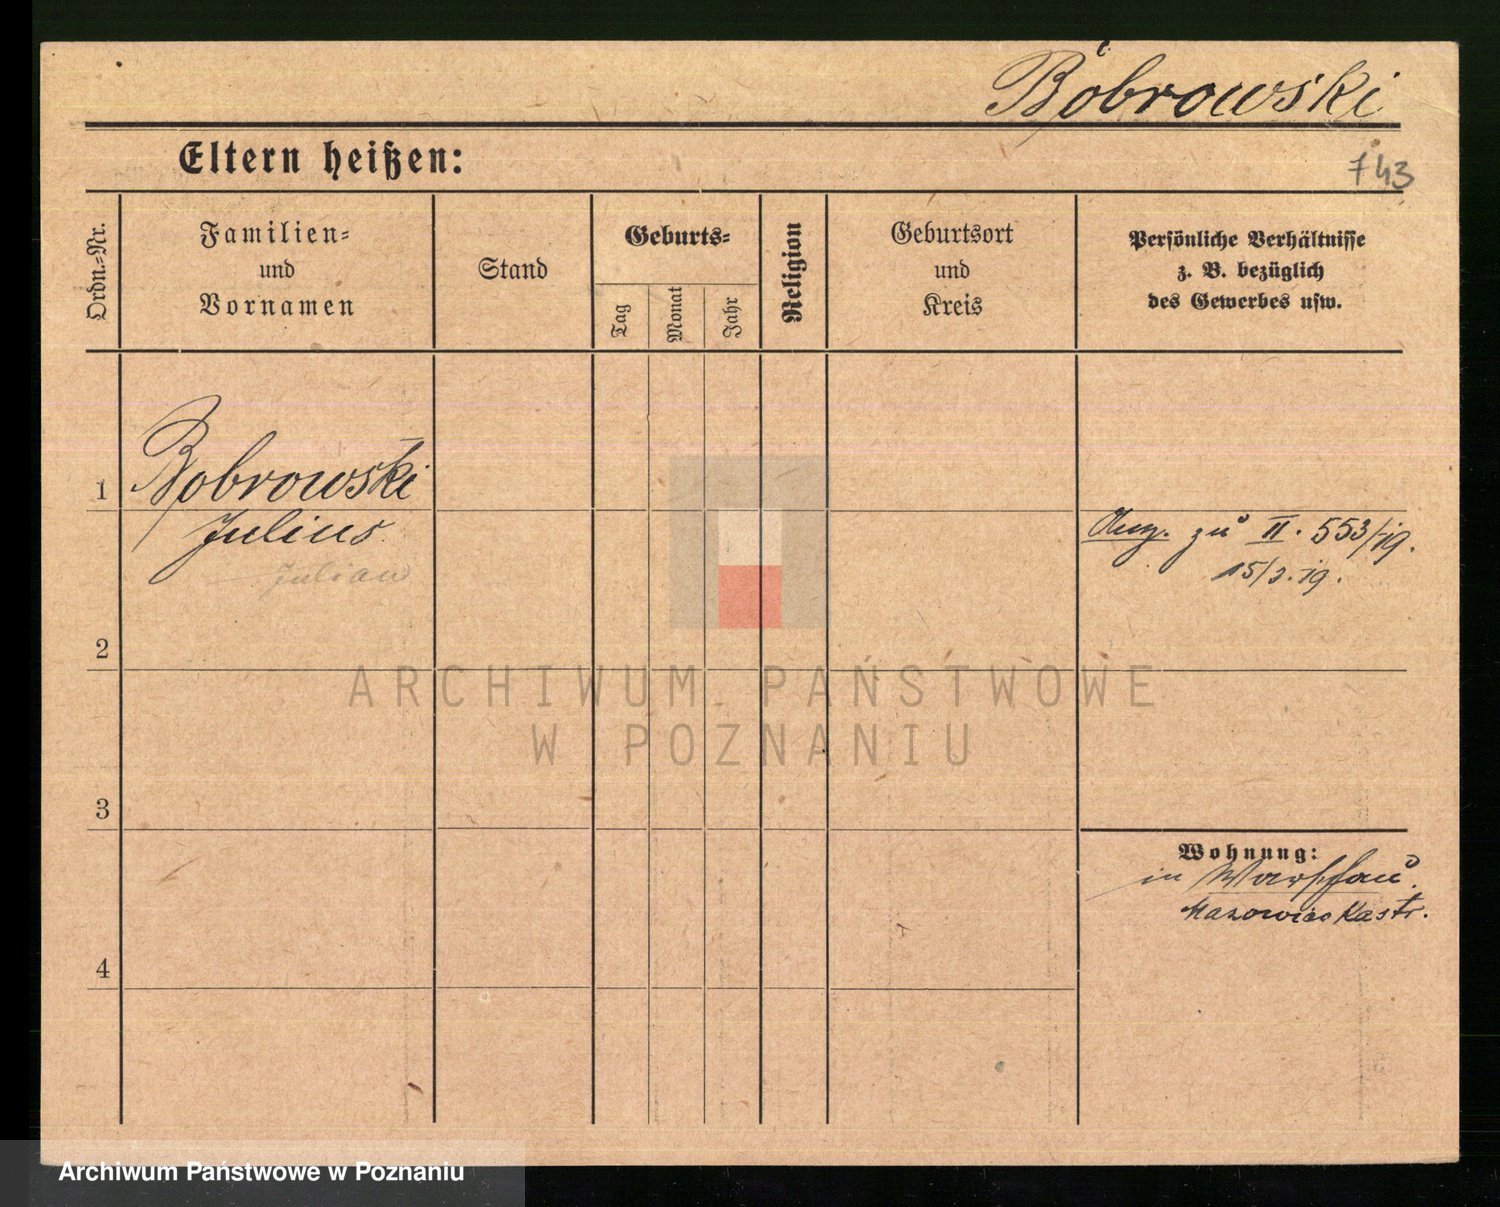 Bobrowski
Eltern heißen:
743
Ordn.-Nr.
Familien-
und
Vornamen
Stand
Geburts-
Tag
Monat
Jahr
Religion
Geburtsort
und
Kreis
Persönliche Verhältnisse
z. B. bezüglich
des Gewerbes usw.
1
Bobrowski
Julius
Julian
zu II. 553/19.
15/3.19.
2
3
Wohnung:
in Warschau
4
ARCHIWUM PAŃSTWOWE
W POZNANIU
Archiwum Państwowe w Poznaniu